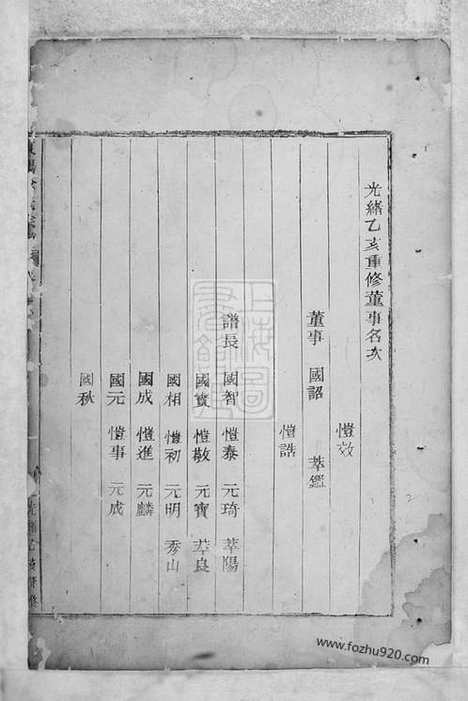 光緒乙亥重修董事名次
愷效
董事 國詔 萃鑑
愷誥
譜長 國智 愷泰 元琦 萃陽
國實 愷敬 元寶 萃良
國相 愷初 元明 秀山
國成 愷進 元麟
國元 愷事 元成
國秋
www.fozhu920.com